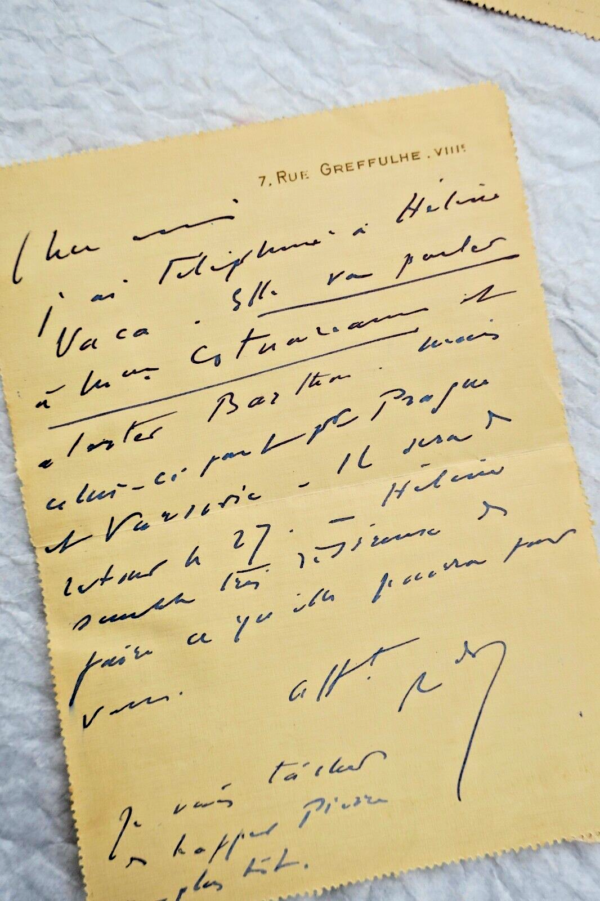 7, RUE GREFFULHE. VIIIE
Cher ami
j'ai téléphoné à Hélène
Vaca. Elle va parler
à et
alerter Barthou. mais
celui-ci part pr Prague
et Varsovie - Il sera de
retour le 27. - Hélène
semble très désireuse de
faire ce qu'elle pourra pour
vous. afft
Je vais tâcher
de happer Pierre
plus tôt.